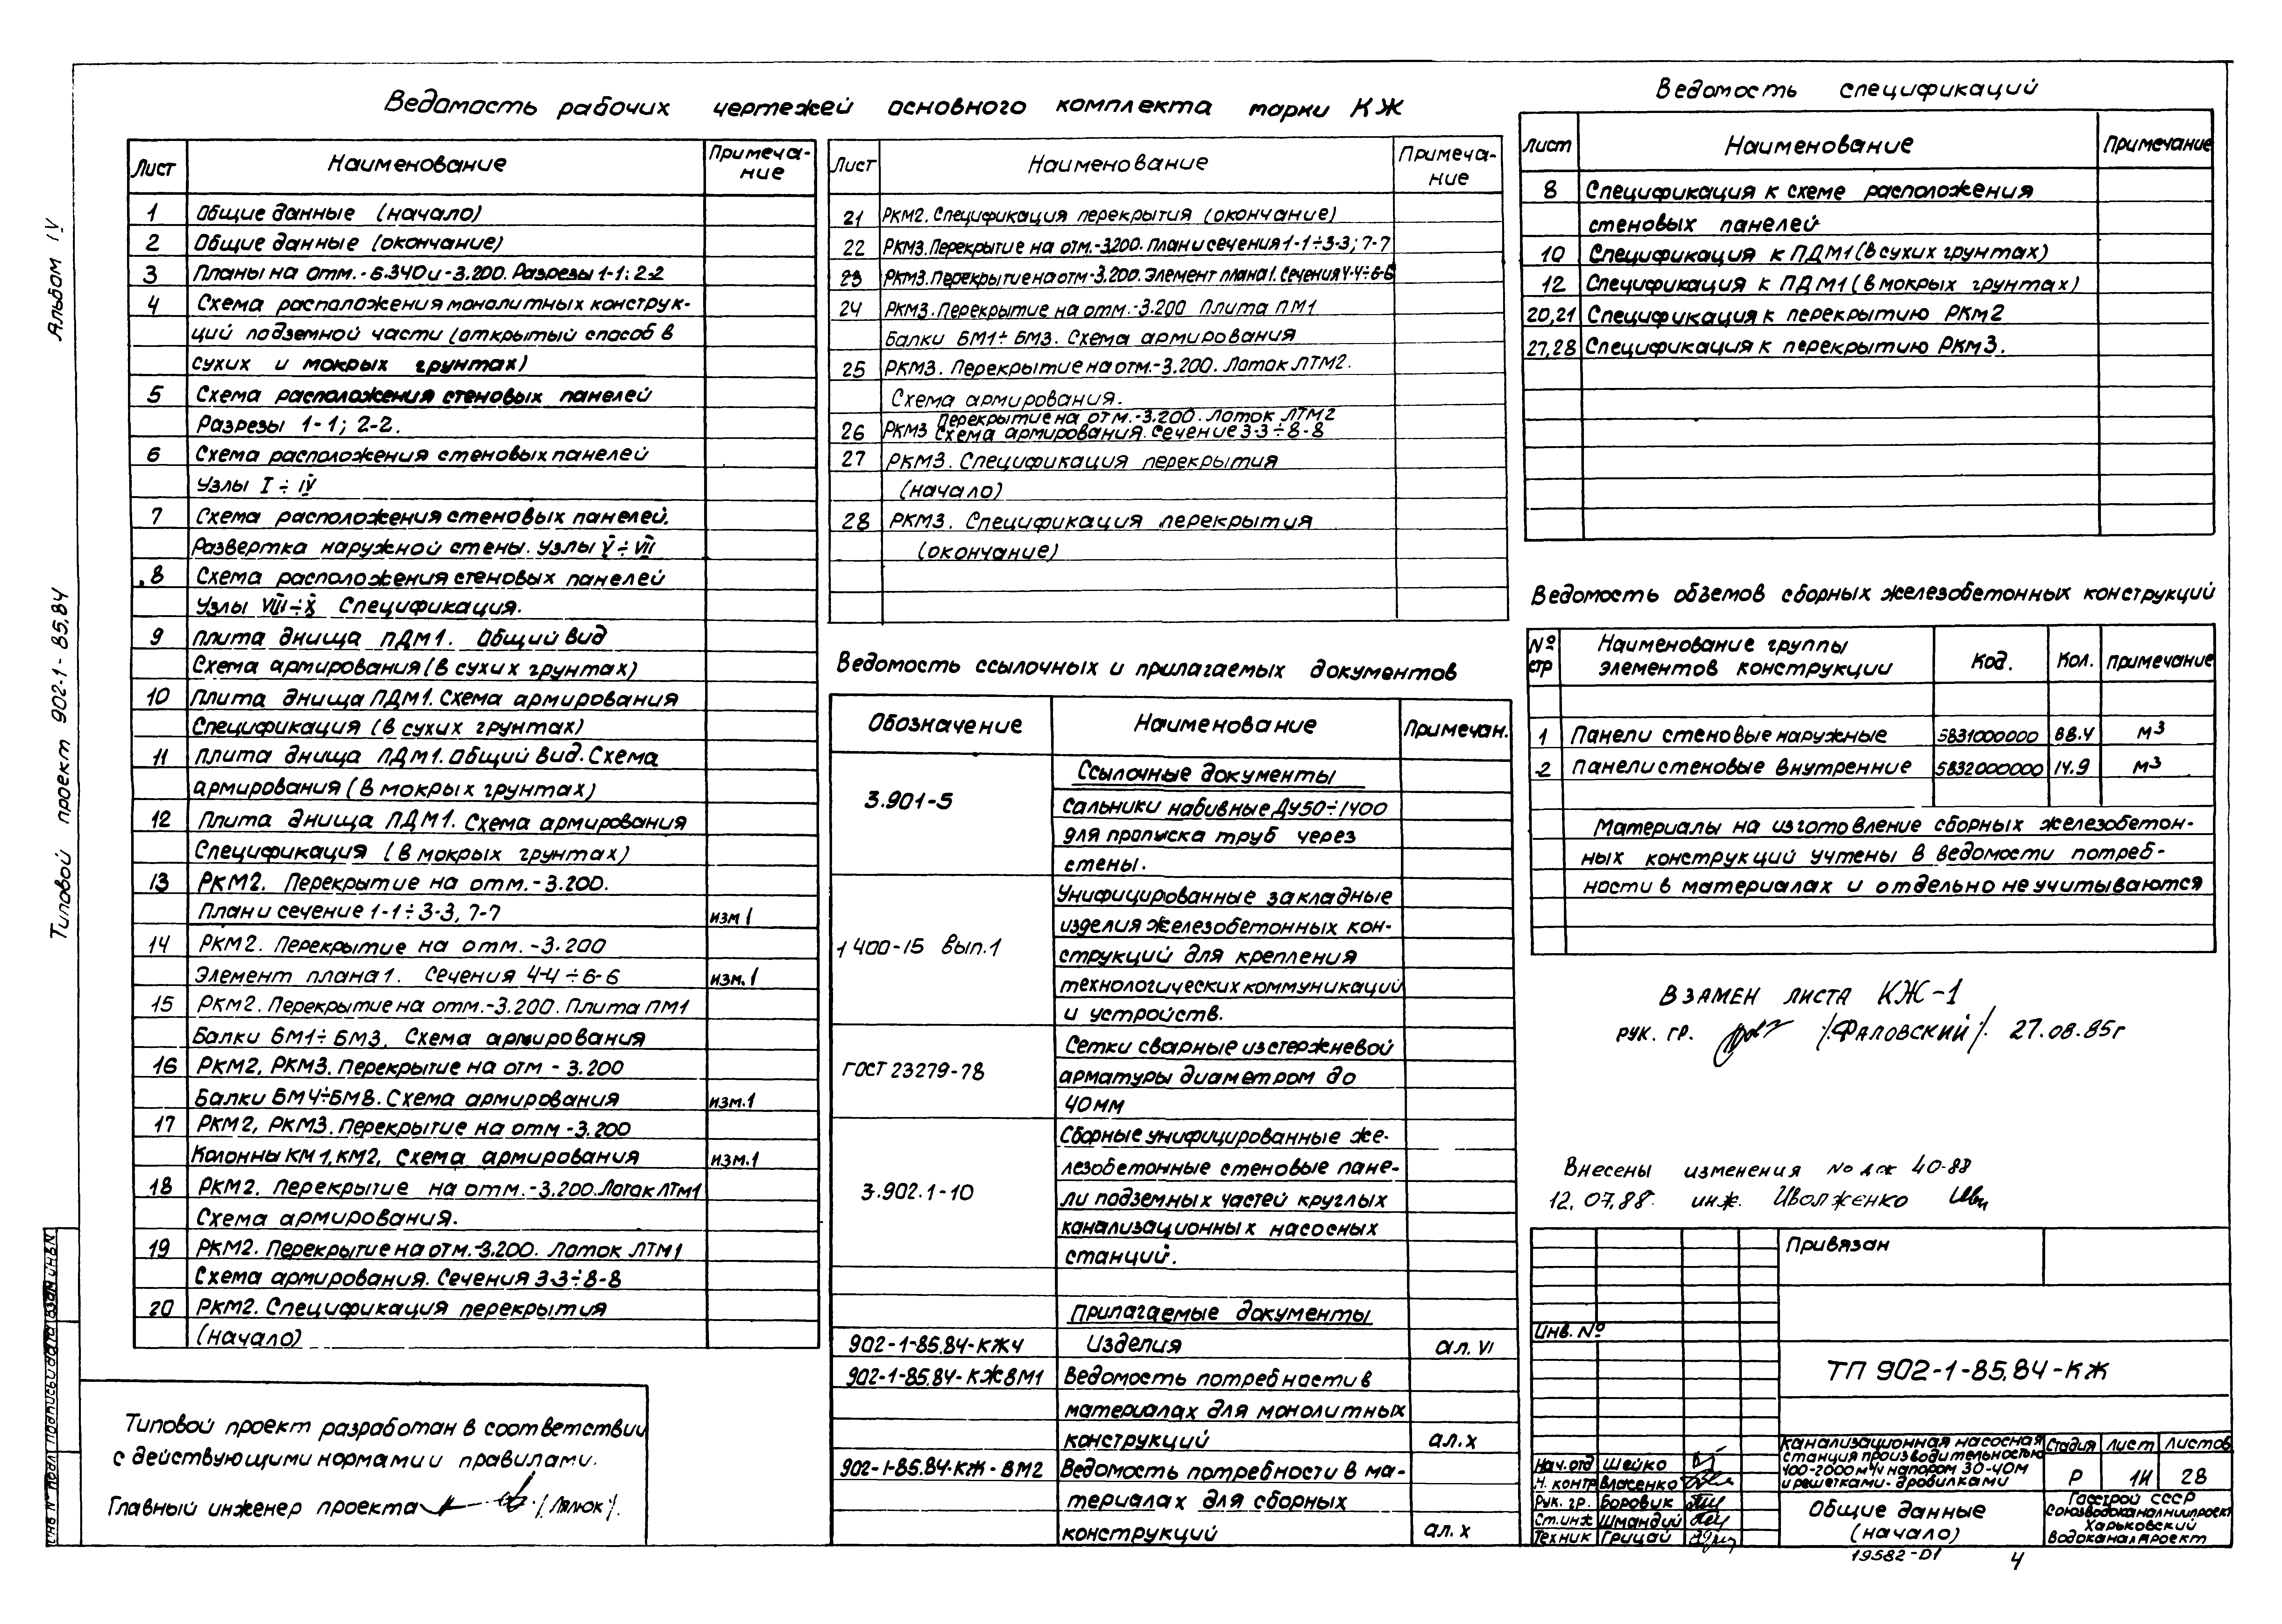 Альбом IV
Типовой проект 902-1-85.84
Ведомость рабочих чертежей основного комплекта марки КЖ
Лист Наименование Примеча-
ние
1 Общие данные (начало)
2 Общие данные (окончание)
3 Планы на отм. -6.340 и -3.200. Разрезы 1-1; 2-2
4 Схема расположения монолитных конструк-
ций подземной части (открытый способ в
сухих и мокрых грунтах)
5 Схема расположения стеновых панелей
Разрезы 1-1; 2-2.
6 Схема расположения стеновых панелей
Узлы I÷IV
7 Схема расположения стеновых панелей.
Развертка наружной стены. Узлы V÷VII
8 Схема расположения стеновых панелей
Узлы VIII÷X Спецификация.
9 Плита днища ПДМ1. Общий вид
Схема армирования (в сухих грунтах)
10 Плита днища ПДМ1. Схема армирования
Спецификация (в сухих грунтах)
11 Плита днища ПДМ1. Общий вид. Схема
армирования (в мокрых грунтах)
12 Плита днища ПДМ1. Схема армирования
Спецификация (в мокрых грунтах)
13 РКМ2. Перекрытие на отм. -3.200.
План и сечение 1-1÷3-3, 7-7 изм 1
14 РКМ2. Перекрытие на отм. -3.200
Элемент плана 1. Сечения 4-4÷6-6 изм. 1
15 РКМ2. Перекрытие на отм. -3.200. Плита ПМ1
Балки БМ1÷БМ3. Схема армирования
16 РКМ2, РКМ3. Перекрытие на отм -3.200
Балки БМ4÷БМ8. Схема армирования изм.1
17 РКМ2, РКМ3. Перекрытие на отм -3.200
Колонны КМ1, КМ2, Схема армирования изм.1
18 РКМ2. Перекрытие на отм. -3.200. Лоток ЛТМ1
Схема армирования.
19 РКМ2. Перекрытие на отм. -3.200. Лоток ЛТМ1
Схема армирования. Сечения 3-3÷8-8
20 РКМ2. Спецификация перекрытия
(начало)
Лист Наименование Примеча-
ние
21 РКМ2. Спецификация перекрытия (окончание)
22 РКМ3. Перекрытие на отм. -3.200. План и сечения 1-1÷3-3; 7-7
23 РКМ3. Перекрытие на отм -3.200. Элемент плана 1. Сечения 4-4÷6-6
24 РКМ3. Перекрытие на отм. -3.200 Плита ПМ1
Балки БМ1÷БМ3. Схема армирования
25 РКМ3. Перекрытие на отм. -3.200. Лоток ЛТМ2.
Схема армирования.
26 РКМ3 Перекрытие на отм. -3.200. Лоток ЛТМ2
Схема армирования. Сечение 3-3÷8-8
27 РКМ3. Спецификация перекрытия
(начало)
28 РКМ3. Спецификация перекрытия
(окончание)
Ведомость ссылочных и прилагаемых документов
Обозначение Наименование Примечан.
Ссылочные документы
3.901-5 Сальники набивные Ду50÷1400
для пропуска труб через
стены.
Унифицированные закладные
изделия железобетонных кон-
1400-15 Вып.1 струкций для крепления
технологических коммуникаций
и устройств.
Сетки сварные из стержневой
ГОСТ 23279-78 арматуры диаметром до
40 мм
Сборные унифицированные же-
лезобетонные стеновые пане-
3.902.1-10 ли подземных частей круглых
канализационных насосных
станций.
Прилагаемые документы
902-1-85.84-КЖЧ Изделия ал. VI
902-1-85.84-КЖВМ1 Ведомость потребности в
материалах для монолитных
конструкций ал. X
902-1-85.84-КЖ-ВМ2 Ведомость потребности в ма-
териалах для сборных
конструкций ал. X
Ведомость спецификаций
Лист Наименование Примечание
8 Спецификация к схеме расположения
стеновых панелей
10 Спецификация к ПДМ1 (в сухих грунтах)
12 Спецификация к ПДМ1 (в мокрых грунтах)
20,21 Спецификация к перекрытию РКМ2
27,28 Спецификация к перекрытию РКМ3.
Ведомость объемов сборных железобетонных конструкций
№ стр Наименование группы элементов конструкции Код. Кол. Примечание
1 Панели стеновые наружные 5831000000 88.4 м3
2 Панели стеновые внутренние 5832000000 14.9 м3
Материалы на изготовление сборных железобетон-
ных конструкций учтены в ведомости потреб-
ности в материалах и отдельно не учитываются
Взамен листа КЖ-1
рук. гр. /Фаловский/. 27.08.85г
Внесены изменения № док 40-88
12.07.88. инж. Иволженко
Привязан
Инв. №
ТП 902-1-85.84-КЖ
Канализационная насосная
станция производительностью
400-2000 м3/ч напором 30-40м
и решетками-дробилками
Стадия Лист Листов
Р 1И 28
Нач. отд Шейко
Н. контр Власенко
Рук. гр. Боровик
Ст. инж Шмандий
Техник Грицай
Общие данные
(начало)
Госстрой СССР
Союзводоканалниипроект
Харьковский
Водоканалпроект
19582-01 4
Типовой проект разработан в соответствии
с действующими нормами и правилами.
Главный инженер проекта /Лялюк/.
Инв № подл Подпись и дата Взам инв №